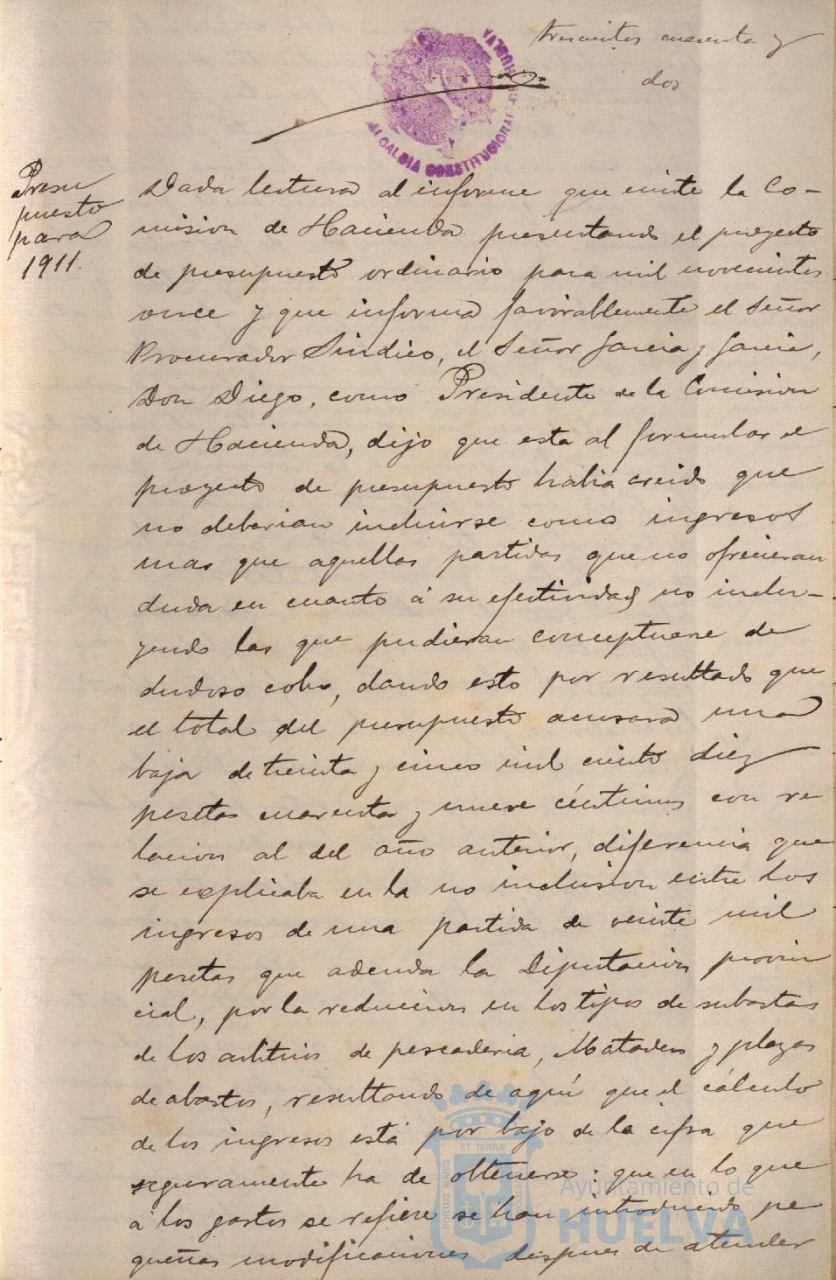 trescientos cuarenta y
dos
ALCALDIA CONSTITUCIONAL HUELVA
Presu
puesto
para
1911.
Dada lectura al informe que emite la Co-
mision de Hacienda presentando el proyecto
de presupuesto ordinario para mil novecientos
once y que informa favorablemente el Señor
Procurador Sindico, el Señor Garcia y Garcia,
Don Diego, como Presidente de la Comision
de Hacienda, dijo que esta al formular el
proyecto de presupuesto habia creido que
no deberian incluirse como ingresos
mas que aquellas partidas que no ofrecieran
duda en cuanto á su efectividad no inclu-
yendo las que pudieran conceptuarse de
dudoso cobro, dando esto por resultado que
el total del presupuesto acusara una
baja de treinta y cinco mil ciento diez
pesetas cuarenta y nueve céntimos con re
lacion al del año anterior, diferencia que
se explicaba en la no inclusion entre los
ingresos de una partida de veinte mil
pesetas que adeuda la Diputacion provin
cial, por la reduccion en los tipos de subastas
de los arbitrios de pescaderia, Matadero y plazas
de abastos, resultando de aquí que el cálculo
de los ingresos está por bajo de la cifra que
seguramente ha de obtenerse: que en lo que
á los gastos se refiere se han introducido pe
queñas modificaciones despues de atender
PORTUS MARIS ET TERRÆ
Ayuntamiento de
HUELVA